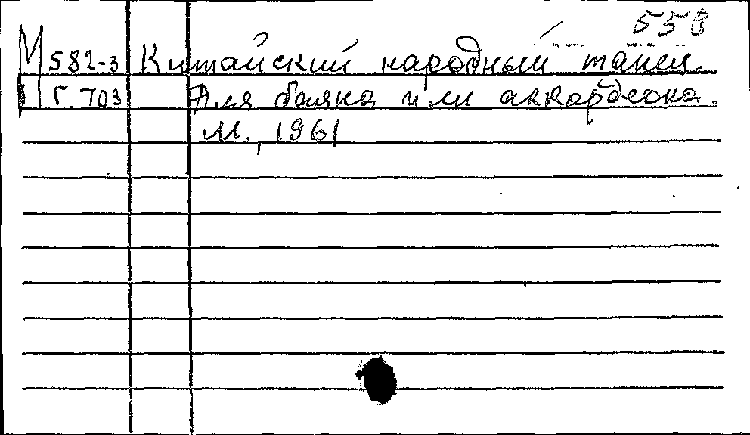 558
М 582-3 Китайский народный танец.
Г 703 Для баяна или аккордеона.
М., 1961